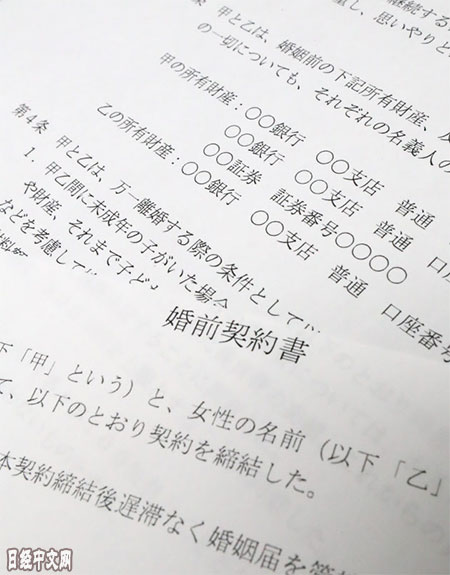 継続する
重し、思いやりと
甲と乙は、婚姻前の下記所有財産、
の一切についても、それぞれの名義人の
甲の所有財産：〇〇銀行 〇〇支店 普通
〇〇銀行 〇〇支店 普通 口座
〇〇証券 証券番号〇〇〇〇
乙の所有財産：〇〇銀行 〇〇支店 普通 口座番号
第4条 甲と乙は、万一離婚する際の条件として
1. 甲乙間に未成年の子がいた場合
や財産、それまで子ど
などを考慮して
婚前契約書
下「甲」という）と、女性の名前（以下「乙」
て、以下のとおり契約を締結した。
本契約締結後遅滞なく婚姻届を
日经中文网